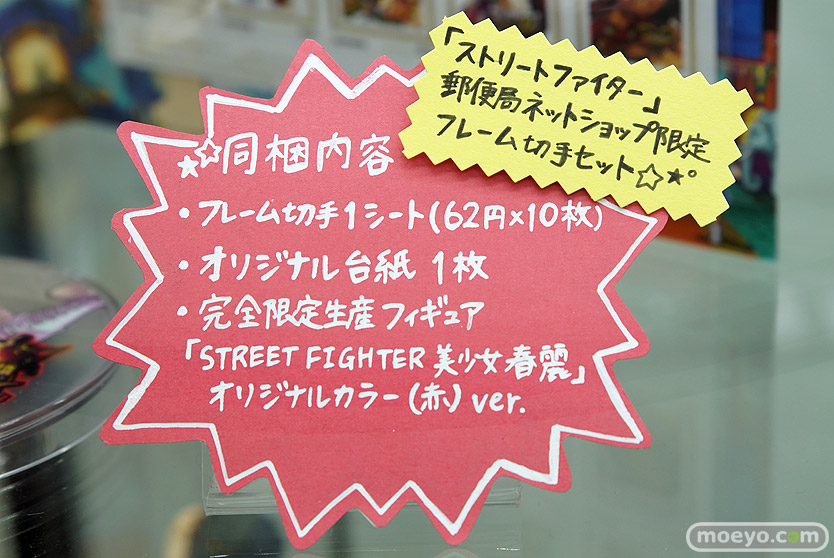 「ストリートファイター」
郵便局ネットショップ限定
フレーム切手セット☆★°
★☆同梱内容
・フレーム切手1シート(62円×10枚)
・オリジナル台紙 1枚
・完全限定生産フィギュア
「STREET FIGHTER 美少女 春麗」
オリジナルカラー(赤) ver.
moeyo.com